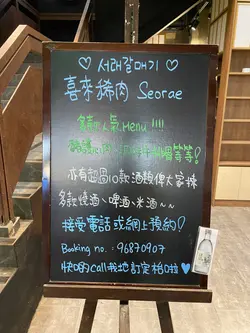 ♡ 서래갈매기 ♡
喜來稀肉 Seorae
人氣 menu !!!!
等等!
亦有超過10款酒類俾大家揀
多款燒酒、啤酒、米酒~~
接受電話或網上預約!
Booking no.: 96870907
快啲call我哋訂定枱啦♥